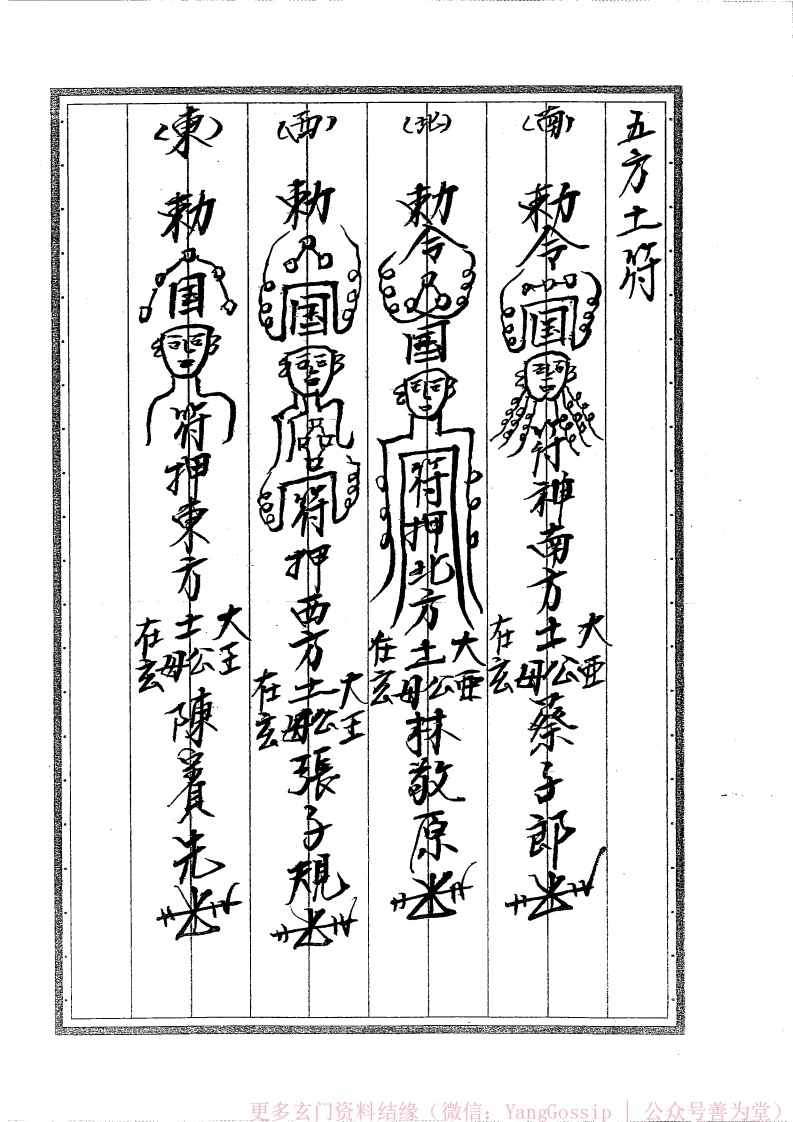 五方土符
（南）
勅令
国
符神南方土公土母蔡子郎
大
在玄
（北）
勅令
国
符押北方土公土母林敬原
大
在玄
（西）
勅
国
符押西方土公土母張子規
大王
在玄
（東）
勅
国
符押東方土公土母陳養先
大王
在玄
更多玄门资料结缘（微信：YangGossip | 公众号善为堂）